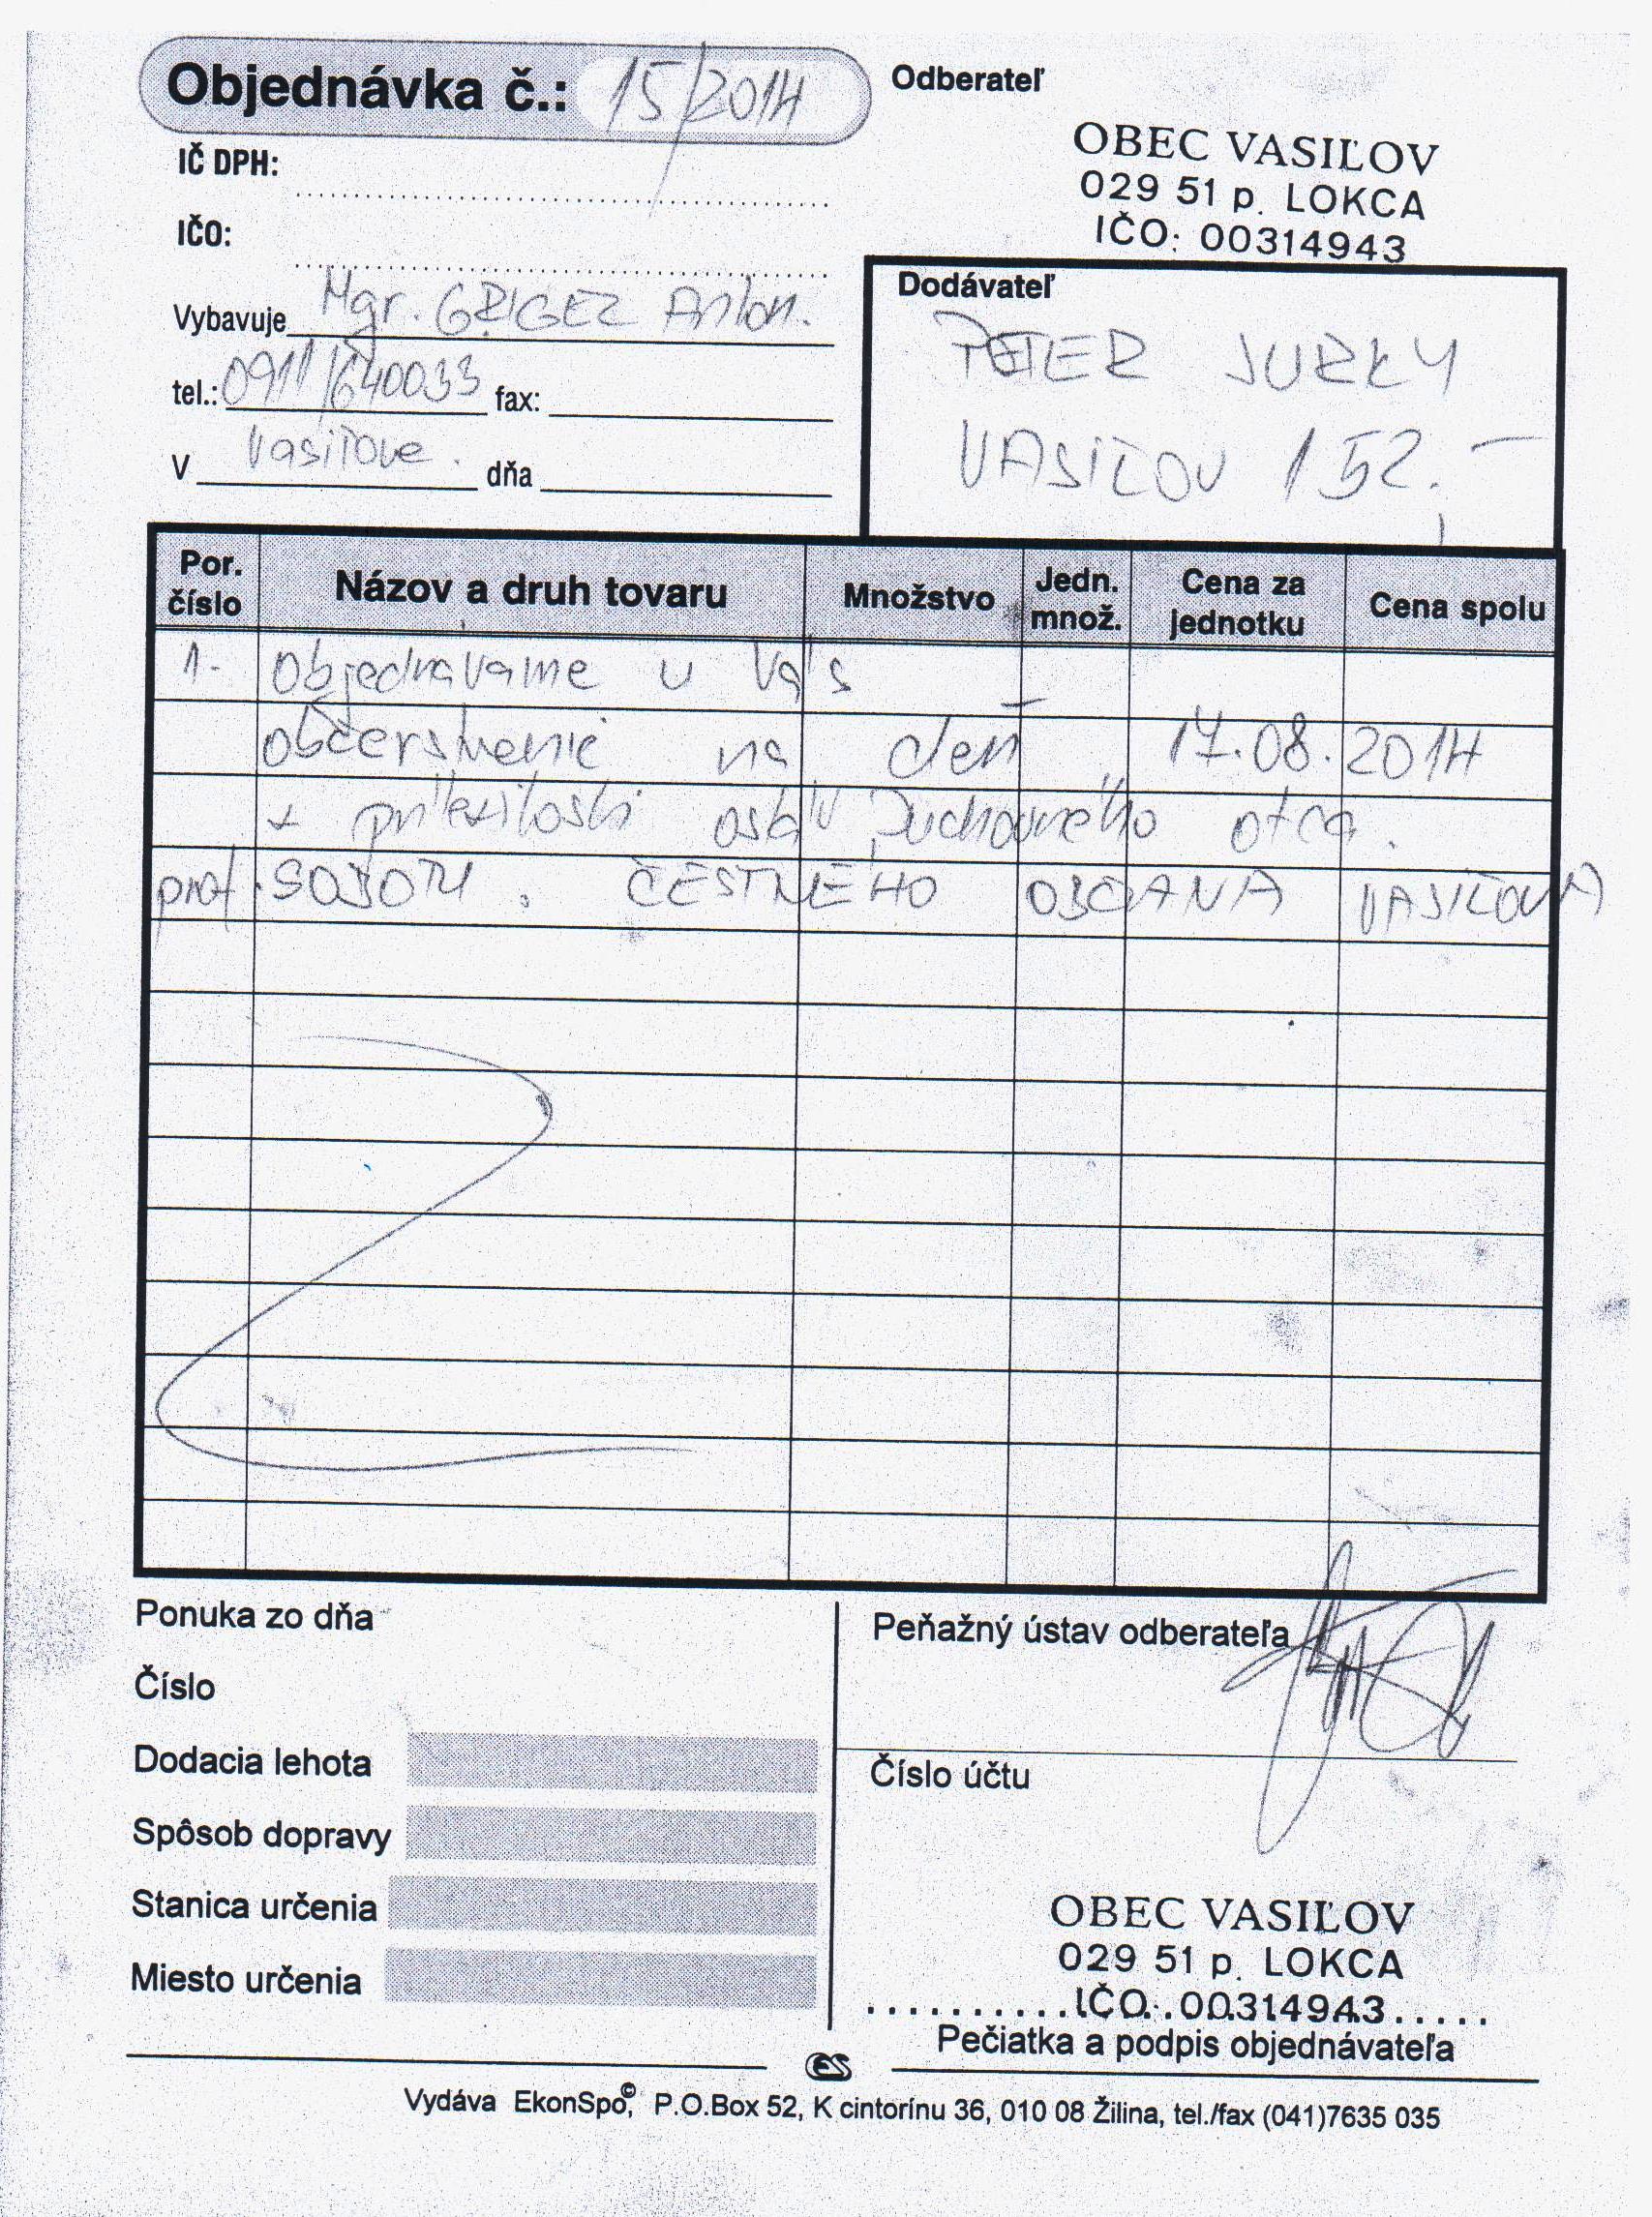 Objednávka č.: 15/2014
Odberateľ
OBEC VASIĽOV
029 51 p. LOKCA
IČO: 00314943
IČ DPH:
IČO:
Vybavuje Mgr. GRIGEĽ Anton.
tel.: 0911/640033 fax:
V Vasiľove. dňa
Dodávateľ
PETER JURKY
VASIĽOV 152.
Por. číslo
Názov a druh tovaru
Množstvo
Jedn. množ.
Cena za jednotku
Cena spolu
1. Objednávame u Vás
občerstvenie na deň 17.08.2014
k príležitosti osláv Duchovného otca.
prof. SOBOTU. ČESTNÉHO OBČANA VASIĽOVA
Ponuka zo dňa
Číslo
Dodacia lehota
Spôsob dopravy
Stanica určenia
Miesto určenia
Peňažný ústav odberateľa
Číslo účtu
OBEC VASIĽOV
029 51 p. LOKCA
IČO: 00314943
Pečiatka a podpis objednávateľa
Vydáva EkonSpo©, P.O.Box 52, K cintorínu 36, 010 08 Žilina, tel./fax (041)7635 035